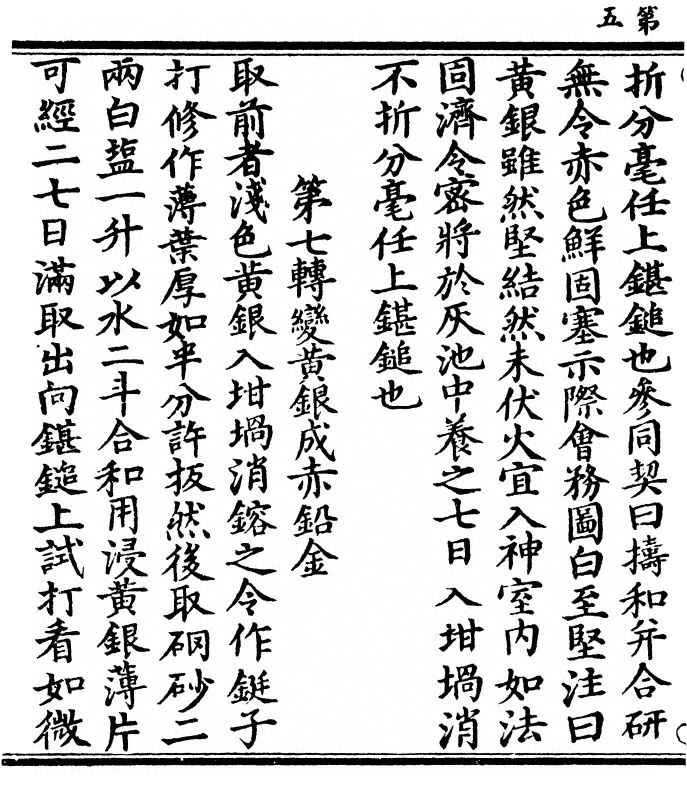 第五
折分毫任上鍖鎚也參同契曰擣和并合研
無令赤色鮮固塞示際會務圖白至堅注曰
黃銀雖然堅結然未伏火宜入神室內如法
固濟令密將於灰池中養之七日入坩堝消
不折分毫任上鍖鎚也
第七轉變黃銀成赤鉛金
取前者淺色黃銀入坩堝消鎔之令作鋌子
打修作薄葉厚如半分許扳然後取硇砂二
兩白塩一升以水二斗合和用浸黃銀薄片
可經二七日滿取出向鍖鎚上試打看如微